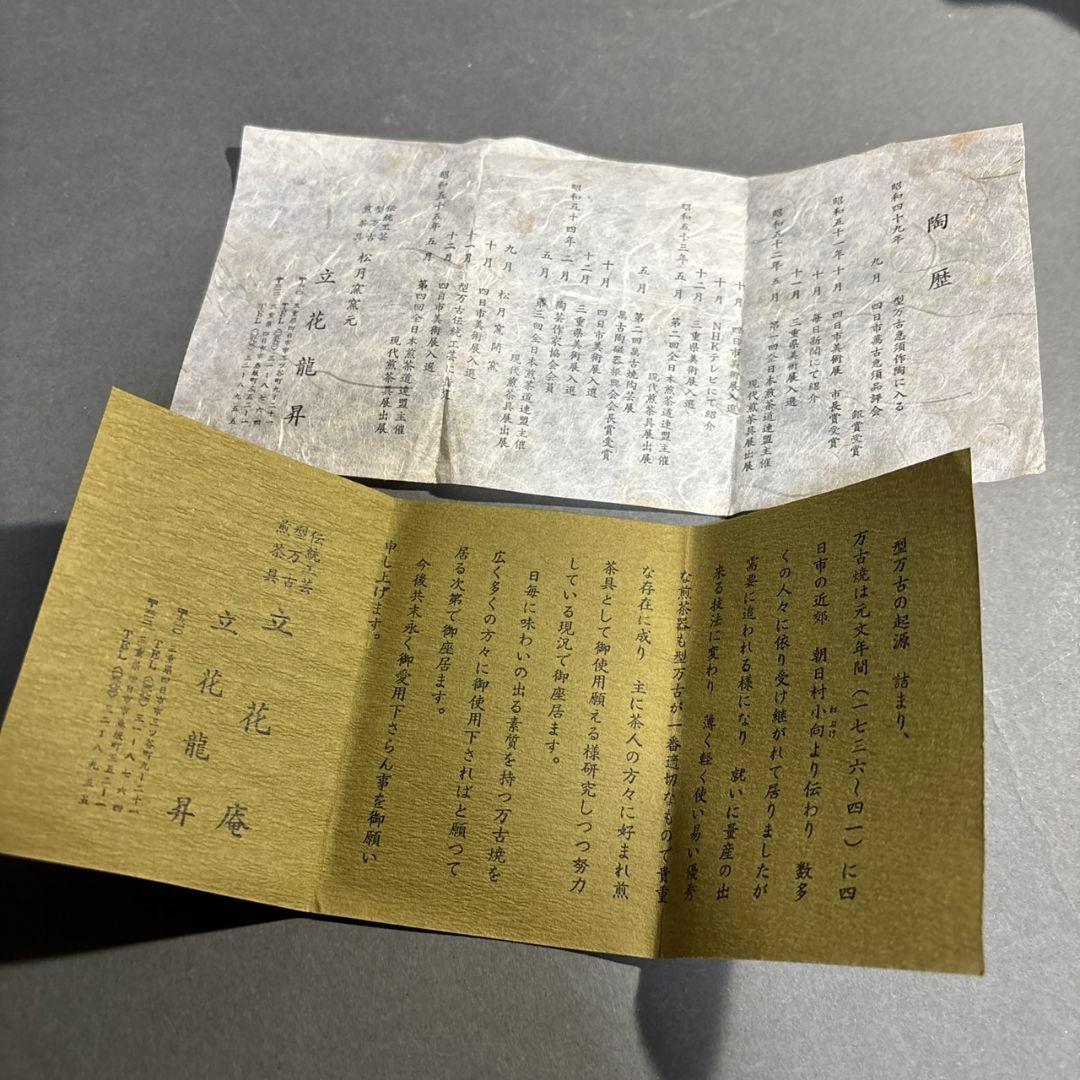 陶歴
昭和四十九年 型万古急須作陶に入る
九月 四日市萬古急須品評会
銀賞受賞
昭和五十一年十月 四日市美術展 市長賞受賞
十月 毎日新聞にて紹介
十一月 三重県美術展入選
昭和五十二年五月 第一回全日本煎茶道連盟主催
現代煎茶具展出展
十月 四日市美術展入選
十月 NHKテレビにて紹介
十二月 三重県美術展入選
昭和五十三年五月 第二回全日本煎茶道連盟主催
現代煎茶具展出展
五月 第二回萬古焼陶芸展
萬古陶磁器振興会会長賞受賞
十月 四日市美術展入選
十二月 三重県美術展入選
昭和五十四年二月 陶芸作家協会会員
五月 第三回全日本煎茶道連盟主催
現代煎茶具展出展
九月 松月窯開窯
十月 四日市美術展入選
十一月 型万古伝統工芸に
十二月 四日市美術展入選
昭和五十五年五月 第四回全日本煎茶道連盟主催
現代煎茶具展出展
伝統工芸
型万古
煎茶具
松月窯窯元
立花龍昇
型万古の起源 詰まり、
万古焼は元文年間(一七三六~四一)に四
日市の近郊 朝日村小向より伝わり 数多
くの人々に依り受け継がれて居りましたが
需要に追われる様になり 就いに量産の出
来る技法に変わり 薄く軽く使い易い優秀
な煎茶器も型万古が一番適切なもので貴重
な存在に成り 主に茶人の方々に好まれ煎
茶具として御使用願える様研究しつつ努力
している現況で御座居ます。
日毎に味わいの出る素質を持つ万古焼を
広く多くの方々に御使用下さればと願つて
居る次第で御座居ます。
今後共末永く御愛用下さらん事を御願い
申し上げます。
伝統工芸
型万古
煎茶具
立花庵
立花龍昇